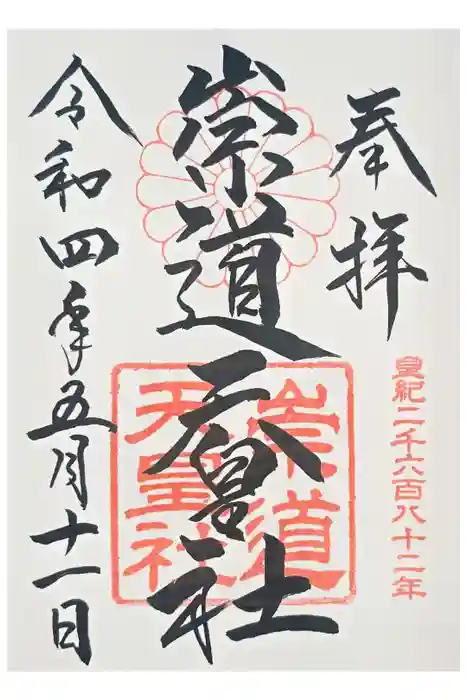 奉拝
皇紀二千六百八十二年
崇道天皇社
崇道
天皇社
令和四年五月十一日